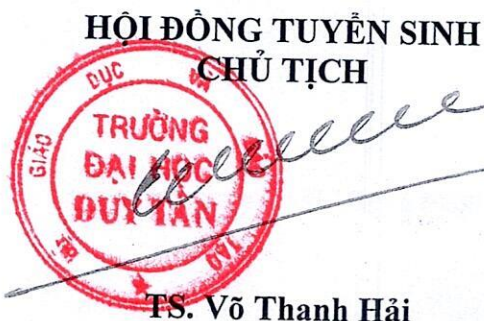 HỘI ĐỒNG TUYỂN SINH
CHỦ TỊCH
GIÁO DỤC VÀ
TẠO
BỘ
TRƯỜNG
ĐẠI HỌC
DUY TÂN
TS. Võ Thanh Hải